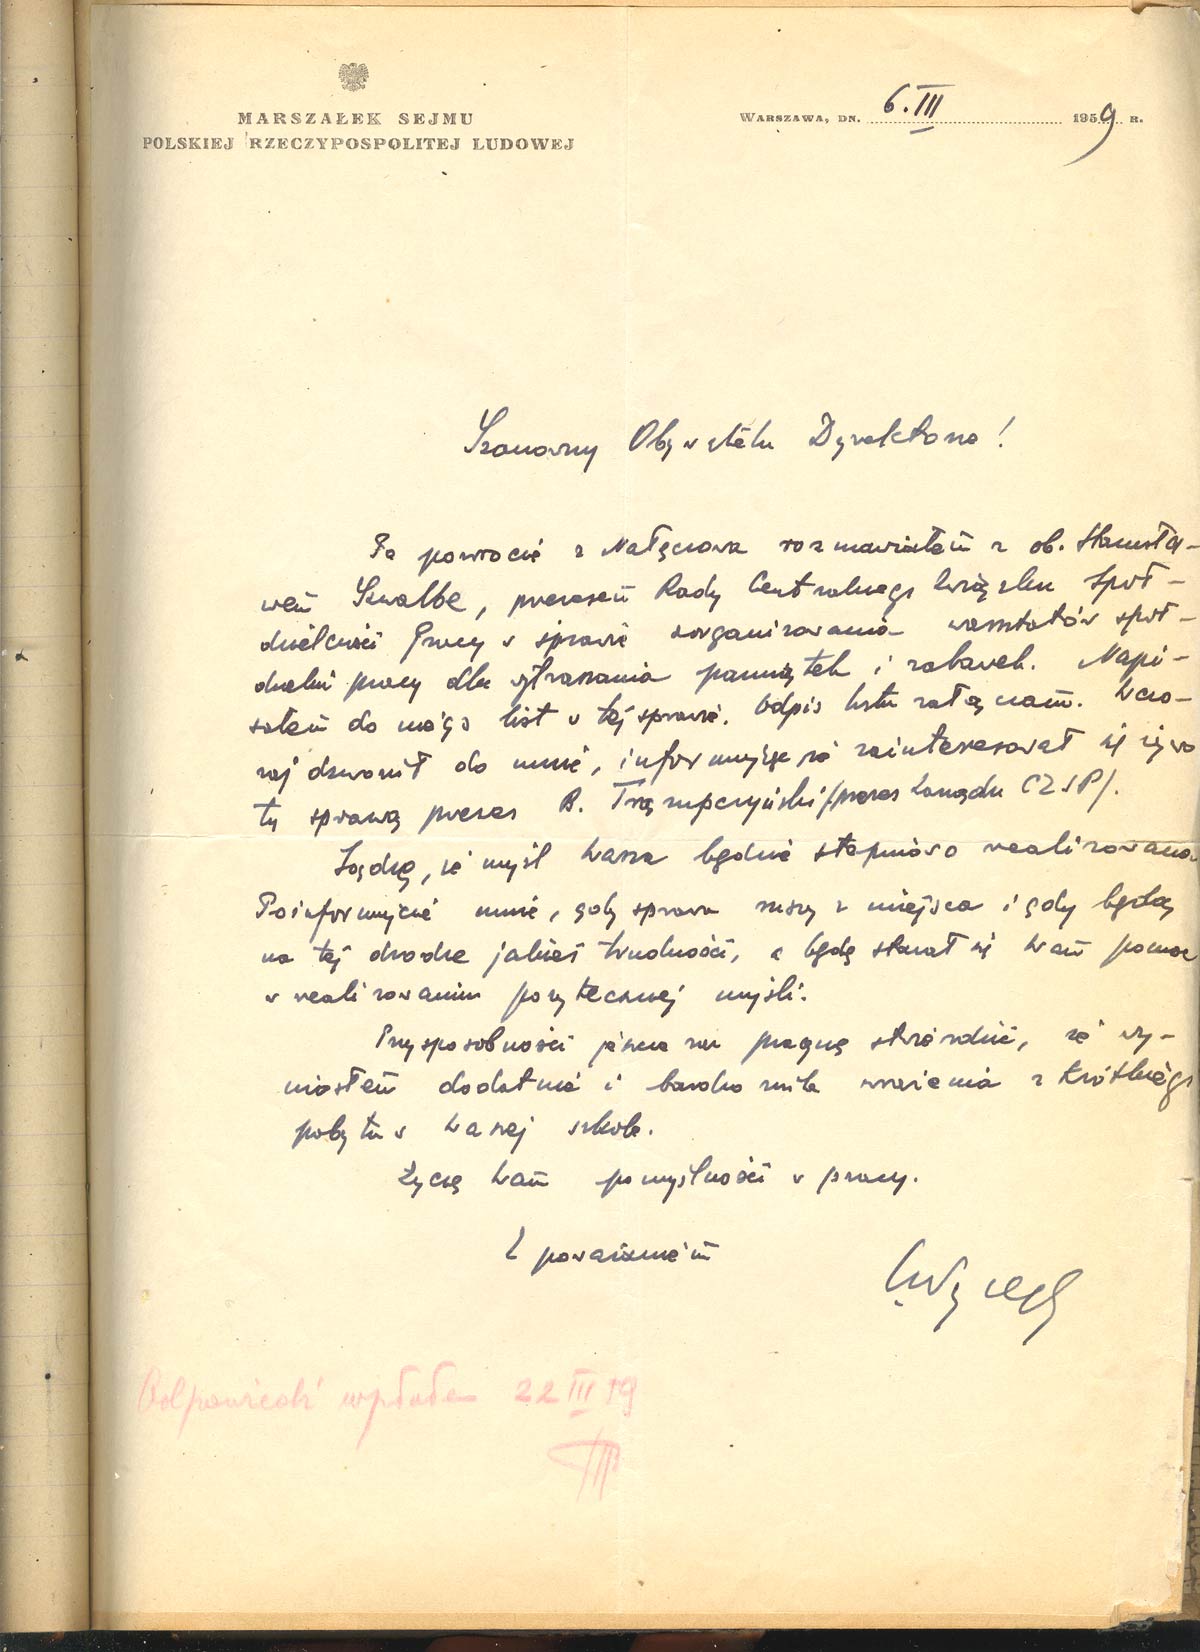 MARSZAŁEK SEJMU
POLSKIEJ RZECZYPOSPOLITEJ LUDOWEJ
WARSZAWA, DN. 6.III 1959 R.
Szanowny Obywatelu Dyrektorze!
Po powrocie z Nałęczowa rozmawiałem z ob. Stanisła-
wem Szwalbe, prezesem Rady Centralnego Związku Spół-
dzielczości Pracy w sprawie zorganizowania warsztatów spół-
dzielni pracy dla wytwarzania pamiątek i zabawek. Napi-
sałem do niego list w tej sprawie. Odpis listu załączam. Wczo-
raj dzwonił do mnie, informując że zainteresował się żywo
tą sprawą prezes B. Trąmpczyński /prezes Zarządu CZSP/.
Sądzę, że myśl Wasza będzie stopniowo realizowana.
Poinformujcie mnie, gdy sprawa ruszy z miejsca i gdy będą
na tej drodze jakieś trudności, a będę starał się Wam pomóc
w realizowaniu pożytecznej myśli.
Przy sposobności jeszcze raz pragnę stwierdzić, że wy-
niosłem dodatnie i bardzo miłe wrażenia z krótkiego
pobytu w Waszej szkole.
Życzę Wam pomyślności w pracy.
Z poważaniem
Odpowiedź wysłałem 22 III 59